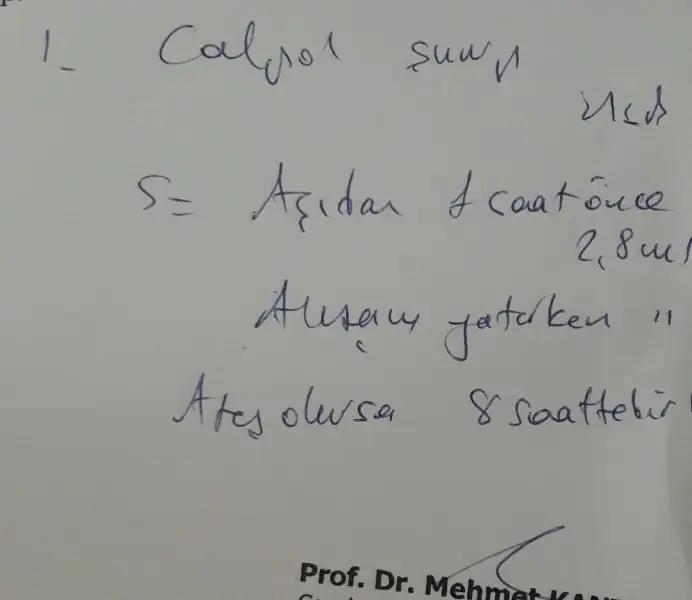 1- Calpol şurup
S= Aşıdan 1 saat önce
2,8 ml
Akşam yatarken "
Ateş olursa 8 saatte bir
Prof. Dr. Mehmet